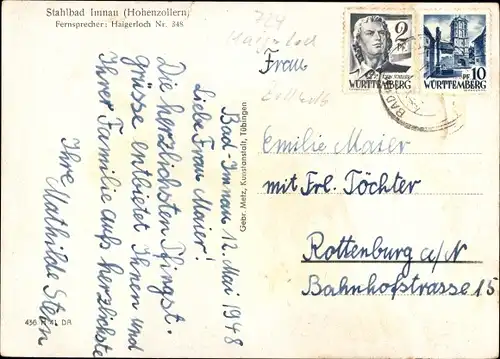 Stahlbad Imnau (Hohenzollern)
Fernsprecher: Haigerloch Nr. 348
Bad-Imnau 12. Mai 1948
Liebe Frau Maier!
Die herzlichsten Pfingst-
grüsse entbietet Ihnen und
Ihrer Familie aufs herzlichste
Ihre Mathilde Stern
436 41 DR
Gebr. Metz, Kunstanstalt, Tübingen
724
Haigerloch
2
PF
WÜRTTEMBERG
10
PF
WÜRTTEMBERG
BAD
Frau
Emilie Maier
mit Frl. Töchter
Rottenburg a/N
Bahnhofstrasse 15